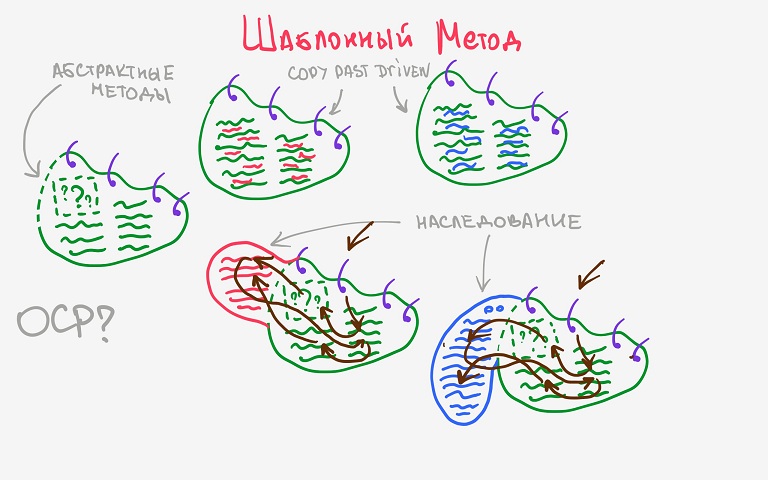 Шаблонный Метод
АБСТРАКТНЫЕ
МЕТОДЫ
COPY PAST DRIVEN
???
НАСЛЕДОВАНИЕ
???
OCP?